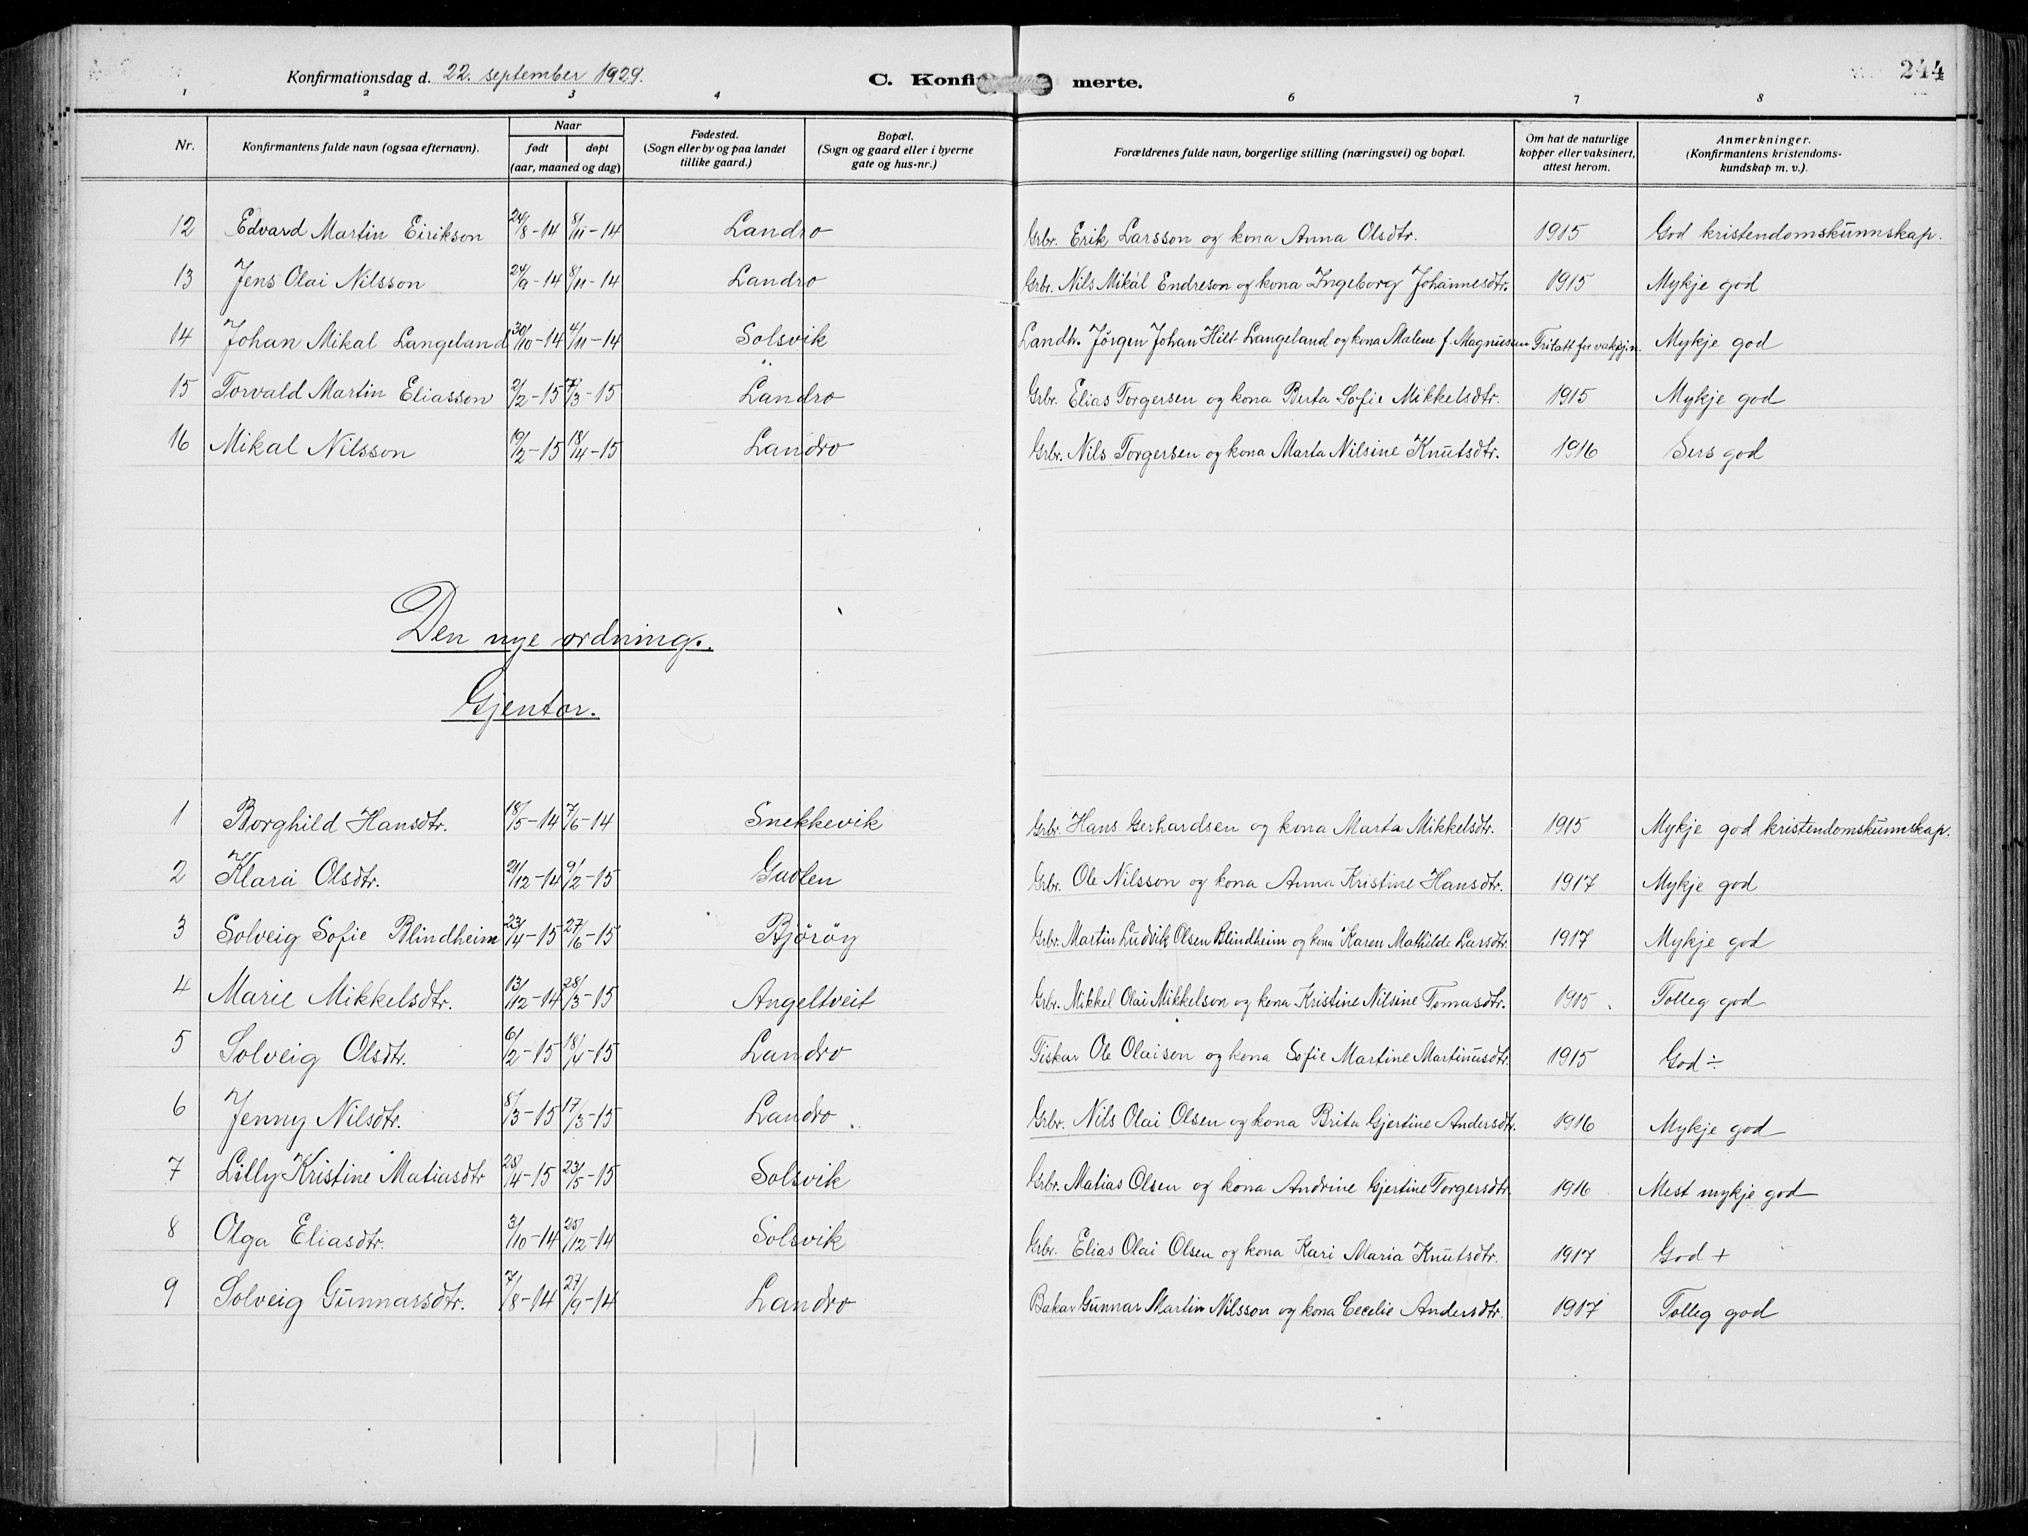 Konfirmationsdag d. 22. september 1929. C. Konfi merte. 244
1 2 3 4 6 7 8
Nr. Konfirmantens fulde navn (ogsaa efternavn). Naar født døpt (aar, maaned og dag) Fødested. (Sogn eller by og paa landet tillike gaard.) Bopæl. (Sogn og gaard eller i byerne gate og hus-nr.) Forældrenes fulde navn, borgerlige stilling (næringsvei) og bopæl. Om hat de naturlige kopper eller vaksinert, attest herom. Anmerkninger. (Konfirmantens kristendoms-kundskap m. v.).
12 Edvard Martin Eirikson 24/8-14 8/11-14 Landro Grbr. Erik Larsson og kona Anna Olsdtr. 1915 God kristendomskunnskap.
13 Jens Olai Nilsson 24/9-14 8/11-14 Landro Grbr. Nils Mikal Endreson og kona Ingeborg Johannesdtr. 1915 Mykje god
14 Johan Mikal Langeland 30/10-14 4/11-14 Solsvik Landh. Jørgen Johan Hilt Langeland og kona Malene f. Magnussen Fritatt for vaksin. Mykje god
15 Torvald Martin Eliasson 2/2-15 7/3-15 Landro Grbr. Elias Torgersen og kona Berta Sofie Mikkelsdtr. 1915 Mykje god
16 Mikal Nilsson 19/2-15 18/4-15 Landro Grbr. Nils Torgersen og kona Marta Nilsine Knutsdtr. 1916 Sers god
Den nye ordning.
Gjentor.
1 Borghild Hansdtr. 18/5-14 7/6-14 Snekkevik Grbr. Hans Gerhardsen og kona Marta Mikkelsdtr. 1915 Mykje god kristendomskunnskap.
2 Klara Olsdtr. 21/12-14 9/2-15 Gavlen Grbr. Ole Nilsson og kona Anna Kristine Hansdtr. 1917 Mykje god
3 Solveig Sofie Blindheim 23/4-15 27/6-15 Bjørøy Grbr. Martin Ludvik Olsen Blindheim og kona Karen Mathilde Larsdtr. 1917 Mykje god
4 Marie Mikkelsdtr. 13/12-14 28/3-15 Angeltveit Grbr. Mikkel Olai Mikkelson og kona Kristine Nilsine Tomasdtr. 1915 Tolleg god
5 Solveig Olsdtr. 6/2-15 18/4-15 Landro Fiskar Ole Olaisen og kona Sofie Martine Martinusdtr. 1915 God ÷
6 Jenny Nilsdtr. 8/3-15 17/3-15 Landro. Grbr. Nils Olai Olsen og kona Brita Gjertine Andersdtr. 1916 Mykje god
7 Lilly Kristine Matiasdtr 25/4-15 23/5-15 Solsvik Grbr. Matias Olsen og kona Andrine Gjertine Torgersdtr. 1916 Mest mykje god
8 Olga Eliasdtr. 3/10-14 25/12-14 Solsvik Grbr. Elias Olai Olsen og kona Kari Maria Knutsdtr. 1917 God +
9 Solveig Gunnarsdtr. 7/8-14 27/9-14 Landro Bakar Gunnar Martin Nilsson og kona Cecelie Andersdtr. 1917 Tolleg god